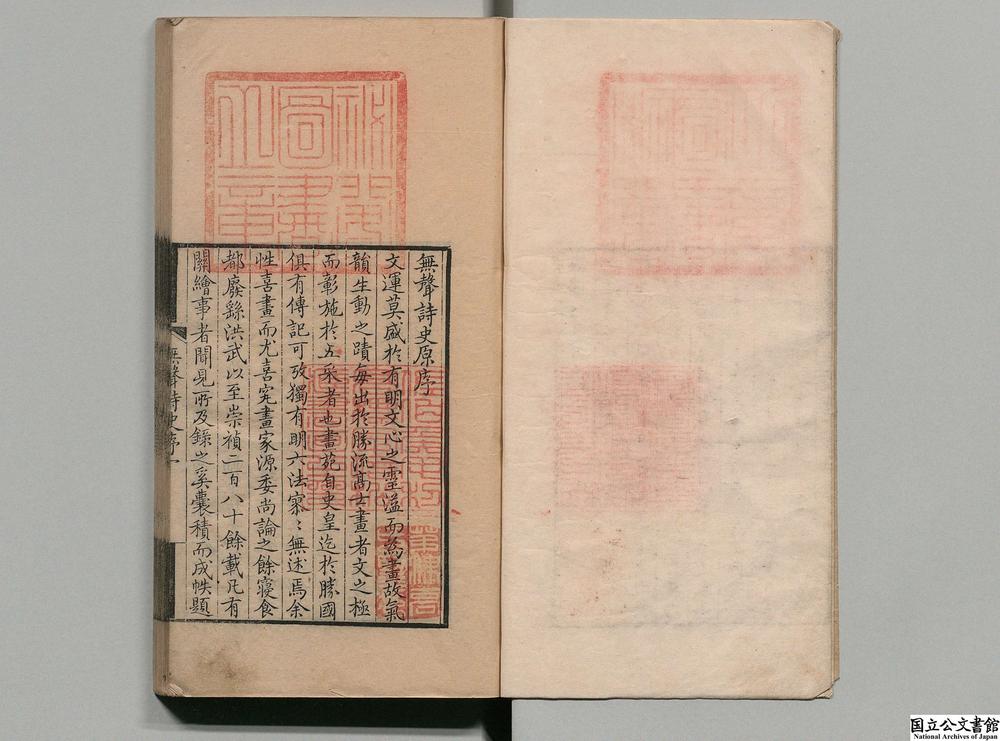 無聲詩史原序
文運莫盛於有明文心之靈溢而為畫故氣
韻生動之蹟每出於勝流高士畫者文之極
而彰施於五采者也畫苑自史皇迄於勝國
俱有傳記可攷獨有明六法寥〻無述焉余
性喜畫而尤喜究畫家源委尚論之餘寢食
都廢繇洪武以至崇禎二百八十餘載凡有
關繪事者聞見所及錄之奚囊積而成帙題
無聲詩史序 一
秘閣
圖書
之章
国立公文書館
National Archives of Japan